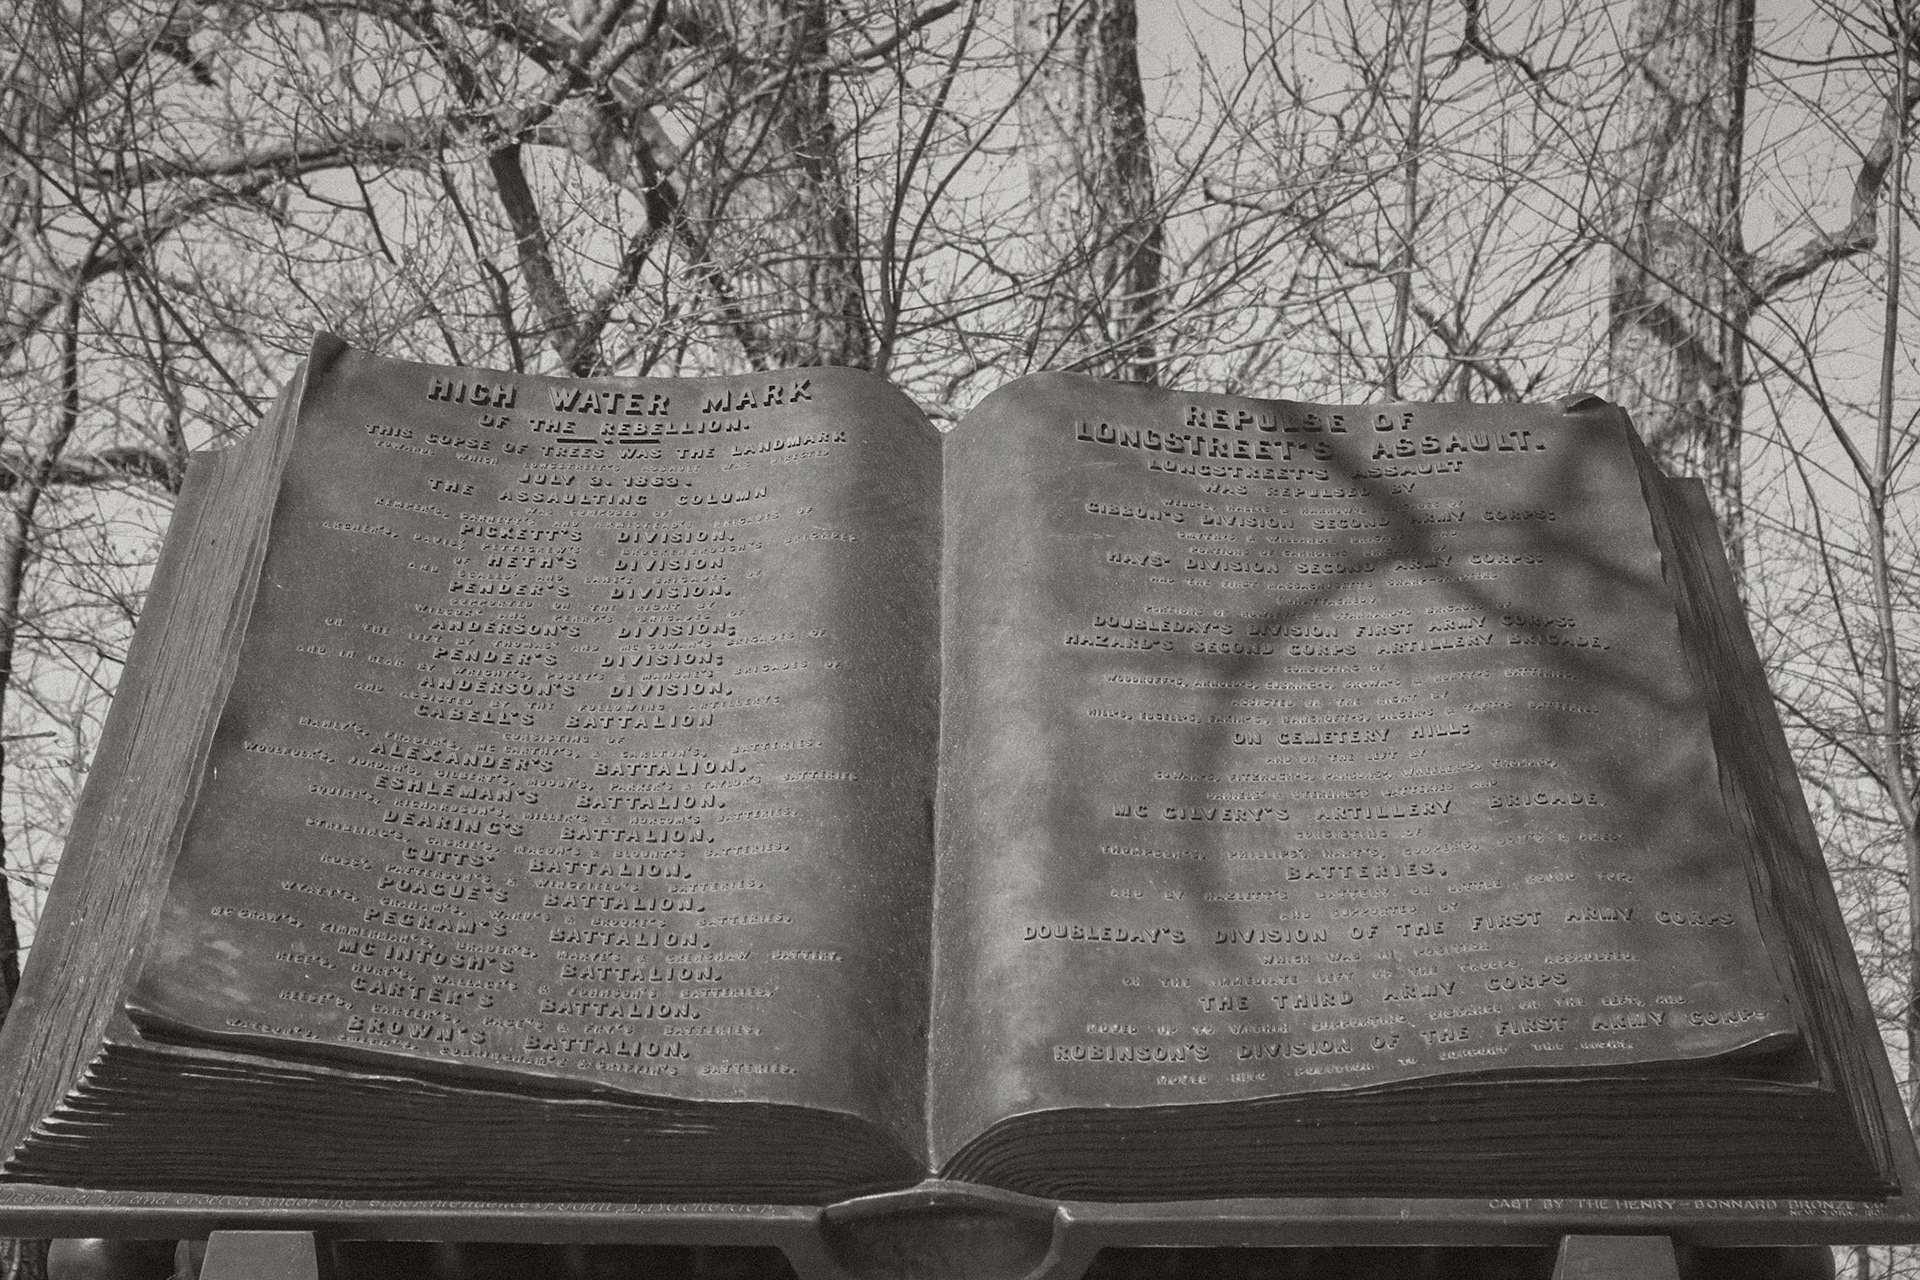 HIGH WATER MARK
OF THE REBELLION.
THIS COPSE OF TREES WAS THE LANDMARK
TOWARDS WHICH LONGSTREET'S ASSAULT WAS DIRECTED
JULY 3. 1863.
THE ASSAULTING COLUMN
WAS COMPOSED OF
KEMPER'S, GARNETT'S AND ARMISTEAD'S BRIGADES OF
PICKETT'S DIVISION,
ARCHER'S, DAVIS', PETTIGREW'S & BROCKENBROUGH'S BRIGADES
OF HETH'S DIVISION
AND SCALES' AND LANE'S BRIGADES OF
PENDER'S DIVISION.
SUPPORTED ON THE RIGHT BY
WILCOX' AND PERRY'S BRIGADES OF
ANDERSON'S DIVISION;
ON THE LEFT BY THOMAS' AND MC GOWAN'S BRIGADES OF
PENDER'S DIVISION;
AND IN REAR BY WRIGHT'S, POSEY'S & MAHONE'S BRIGADES OF
ANDERSON'S DIVISION,
AND ASSISTED BY THE FOLLOWING ARTILLERY:
CABELL'S BATTALION
CONSISTING OF
MANLY'S, FRASER'S, MC CARTHY'S, & CARLTON'S, BATTERIES.
ALEXANDER'S BATTALION,
WOOLFOLK'S, JORDAN'S, GILBERT'S, MOODY'S, PARKER'S & TAYLOR'S BATTERIES
ESHLEMAN'S BATTALION,
SQUIRE'S, RICHARDSON'S, MILLER'S & NORCOM'S BATTERIES.
DEARING'S BATTALION,
STRIBLING'S, CASKIE'S, MACON'S & BLOUNT'S BATTERIES.
CUTTS' BATTALION,
ROSS', PATTERSON'S & WINGFIELD'S BATTERIES.
POAGUE'S BATTALION,
WYATT'S, GRAHAM'S, WARD'S & BROOKE'S BATTERIES.
PEGRAM'S BATTALION,
MC GRAW'S, ZIMMERMAN'S, BRANDER'S, MARYE'S & CRENSHAW BATTERY.
MC INTOSH'S BATTALION,
RICE'S, HURT'S, WALLACE'S & JOHNSON'S BATTERIES.
CARTER'S BATTALION,
REESE'S, CARTER'S, PAGE'S & FRY'S BATTERIES.
BROWN'S BATTALION,
WATSON'S, SMITH'S, CUNNINGHAM'S & GRIFFIN'S BATTERIES.
Designed by and erected under the superintendence of John B. Bachelder.
REPULSE OF
LONGSTREET'S ASSAULT.
LONGSTREET'S ASSAULT
WAS REPULSED BY
WEBB'S, HALL'S & HARROW'S BRIGADES OF
GIBBON'S DIVISION SECOND ARMY CORPS;
SMYTH'S & WILLARD'S BRIGADES AND
PORTIONS OF CARROLL'S BRIGADE OF
HAYS' DIVISION SECOND ARMY CORPS;
AND THE FIRST MASSACHUSETTS SHARP-SHOOTERS
(UNATTACHED)
PORTIONS OF ROWLEY'S & STANNARD'S BRIGADES OF
DOUBLEDAY'S DIVISION FIRST ARMY CORPS;
HAZARD'S SECOND CORPS ARTILLERY BRIGADE,
CONSISTING OF
WOODRUFF'S, ARNOLD'S, CUSHING'S, BROWN'S & RORTY'S BATTERIES.
ASSISTED ON THE RIGHT BY
HILL'S, EDGELL'S, EAKIN'S, BANCROFT'S, DILGER'S & TAFT'S BATTERIES
ON CEMETERY HILL;
AND ON THE LEFT BY
COWAN'S, FITZHUGH'S, PARSONS', WHEELER'S, THOMAS',
DANIELS' & STERLING'S BATTERIES AND
MC GILVERY'S ARTILLERY BRIGADE,
CONSISTING OF
THOMPSON'S, PHILLIPS', HART'S, COOPER'S, DOW'S & AMES'
BATTERIES,
AND BY HAZLETT'S BATTERY ON LITTLE ROUND TOP,
AND SUPPORTED BY
DOUBLEDAY'S DIVISION OF THE FIRST ARMY CORPS
WHICH WAS IN POSITION
ON THE IMMEDIATE LEFT OF THE TROOPS ASSAULTED.
THE THIRD ARMY CORPS
MOVED UP TO WITHIN SUPPORTING DISTANCE ON THE LEFT, AND
ROBINSON'S DIVISION OF THE FIRST ARMY CORPS
MOVED INTO POSITION TO SUPPORT THE RIGHT.
CAST BY THE HENRY-BONNARD BRONZE CO.
NEW YORK.